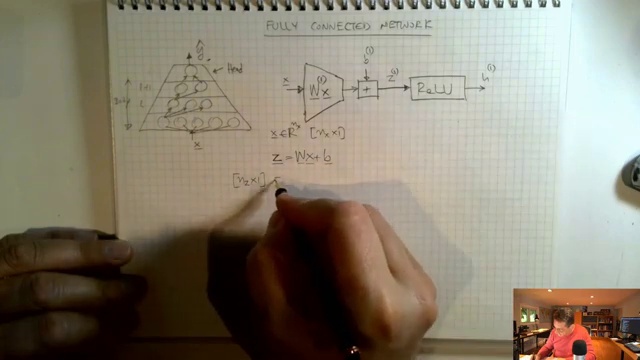 FULLY CONNECTED NETWORK
ŷ
Head
L+1
L
x
x
W x⁽¹⁾
b⁽¹⁾
+
z⁽¹⁾
ReLU
h⁽¹⁾
x ∈ R^{n_x} [n_x×1]
z = Wx + b
[n_z×1]